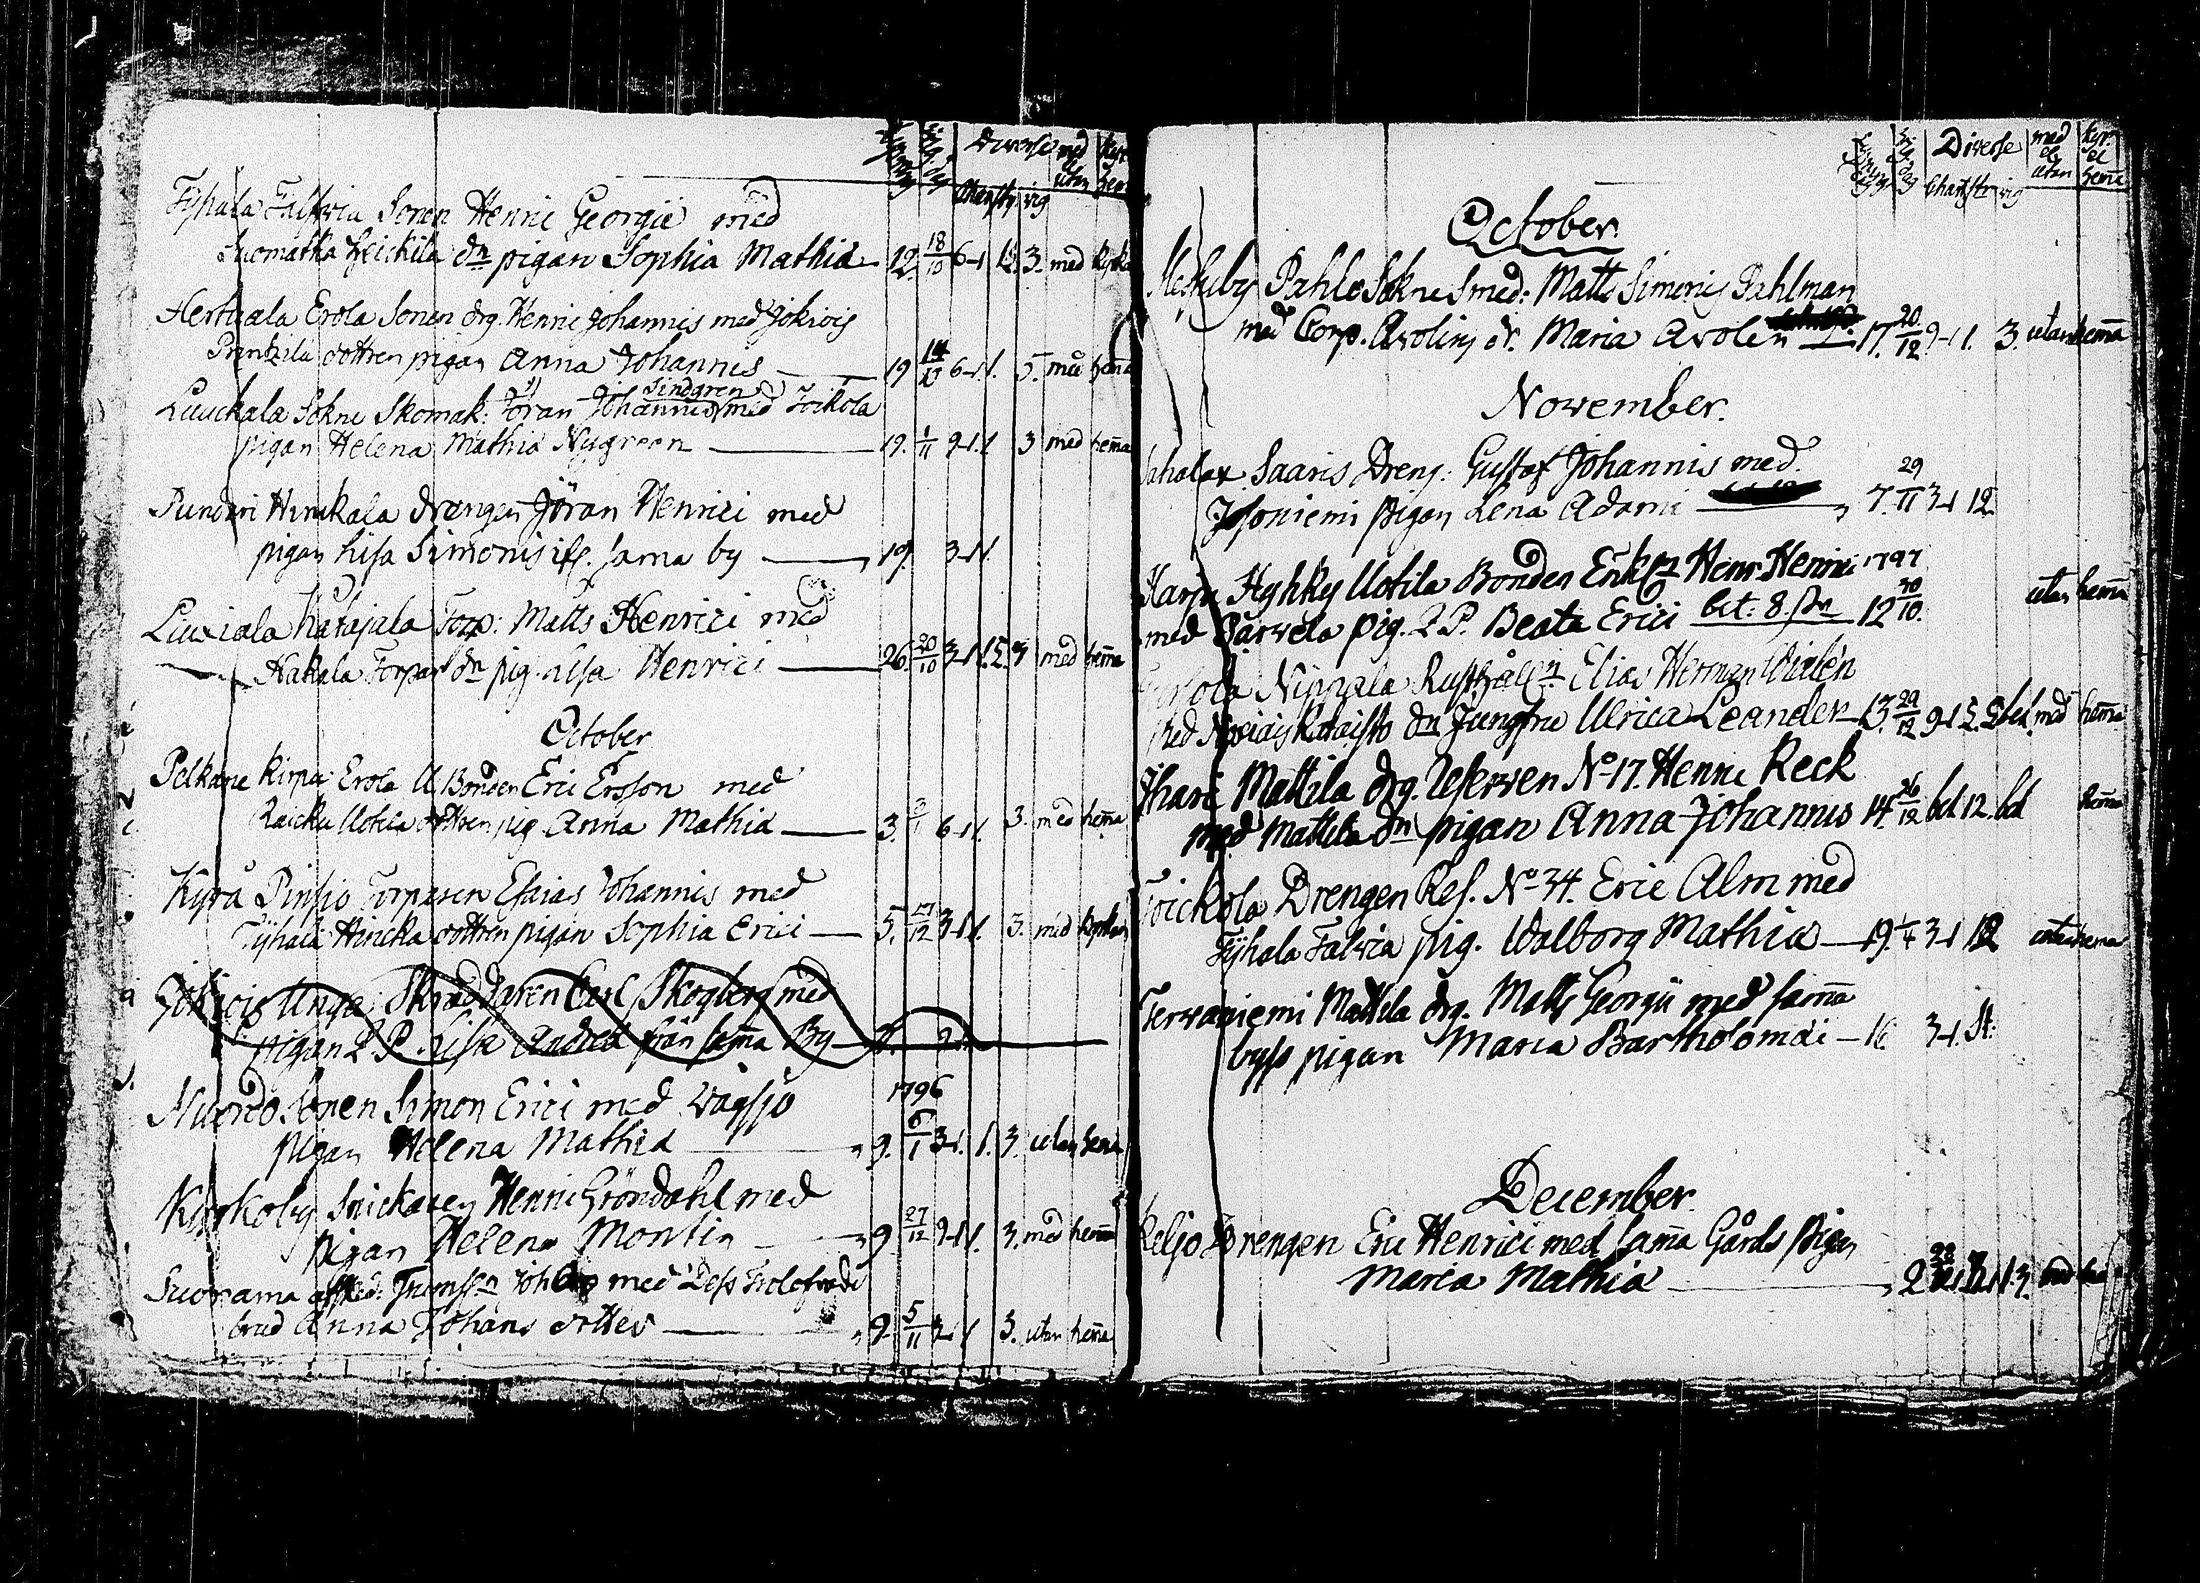 Diverse med el. utan
Charts vig
Tyhala Falkvia Sonen Henric Georgii med
Suomatka Heickila dn pigan Sophia Mathiæ 12. 18/10 6-1 3. med kyrka
Hertuala Erola Sonen drg. Henric Johannis med Jokiois
Prentzila dottren pigan Anna Johannis 19 14/10 6-1. 1. 5. med hema
Sindgren
Liuckala Sokne Skomak: Jöran Johannis med Toikola
pigan Helena Mathiæ Nygreen 19. 1/11 9-1. 1. 3 med hema
Pundari Hirsikala drengen Jöran Henrici med
pigan Lisa Simonis if. sama by 19. 3-1 1.
Liuxiala Katajala Torp: Matts Henrici med
Hakala Torpar dn pig. Lisa Henrici 26. 20/10 3-1 med hema
October
Pelkäne Kirpu Erola U. Bonden Eric Ersson med
Raicku Uotila dottren pig Anna Mathiæ 3. 3/1 6-1 1. 3. med hema
Kyrö Pinsio Torparen Esaias Johannis med
Tyhala Hincka dottren pigan Sophia Erici 5. 27/12 3-1 1. 3. med kyrkan
Jokiois Unga Skräddaren Carl Skogberg med
pigan I. P. Lisa Andreæ från sama By
1796
Huordo Sonen Simon Erici med Vägsjö
pigan Helena Mathiæ 9. 6/1 3-1. 1. 3. utan hema
Kyrkoby Snickaren Henric Gröndahl med
pigan Helena Montin 9. 27/12 9-1 1. 3. med hema
Suorama afsked: Trumsn Joh med Dess Trolofvade
brud Anna Johans dotter 9. 5/11 3-1 1. 3. utan hema
Diverse med el utan kyr. el hema
Chart str vig
October.
Kyrkoby Pahla Sokne Smed: Matts Simonis Pahlman
med Corp. Avolins dr. Maria Avolin 17. 20/12 9-1 1. 3. utan hema
November.
Sahalax Saaris Dreng: Gustaf Johannis med
Isoniemi pigan Lena Adami 7. 29/11 3-1 12
Harju Hyhky Uotila Bonden Enkln Henr. Henrici 1797
med Särvelä pig. I. P. Beata Erici bet: 8. sn 12 30/10. utan hema
Nippala Rusthåln Elias Herman Widén
med Kataisto dn Jungfru Ulrica Leander 13. 29/12 9-1 med hema
Ihari Mattila drg. Reserven No 17. Henric Reck
med Mattila dn pigan Anna Johannis 14. 26/12 bet 12. bet hema
Toickola Drengen Res. No 34. Eric Alm med
Tyhala Falkia pig. Walborg Mathiæ 19. 1/4 3-1 12 utan hema
Tervaniemi Mattila drg. Matts Georgii med sama
byss pigan Maria Bartholomäi 16. 3-1. St:
December.
Keljo Drengen Eric Henrici med sama Gårds pigan
Maria Mathiæ 2